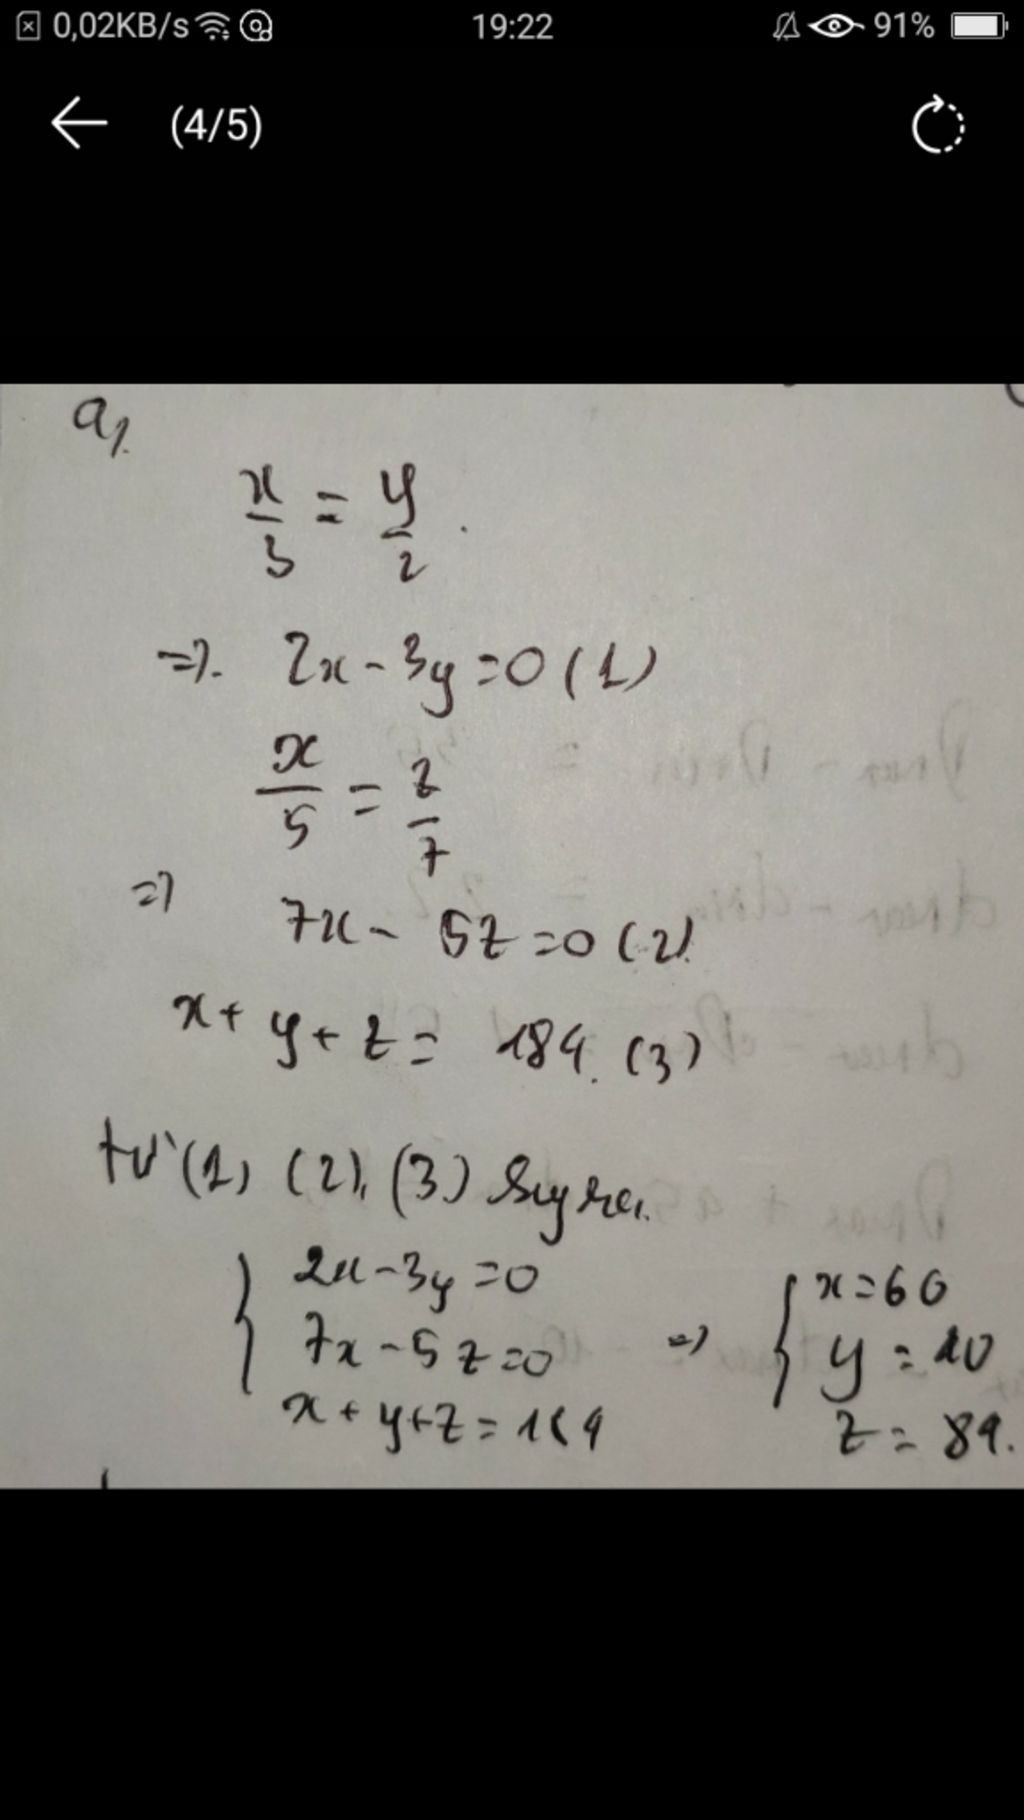 0,02KB/s 19:22 91%
(4/5)
a,
x/3 = y/2 .
=>. 2x - 3y = 0 (1)
x/5 = z/7
=> 7x - 5z = 0 (2)
x + y + z = 184. (3)
từ (1) (2), (3) Suy ra.
{ 2x - 3y = 0
7x - 5z = 0 => { x = 60
y = 40
x + y + z = 184 z = 84.